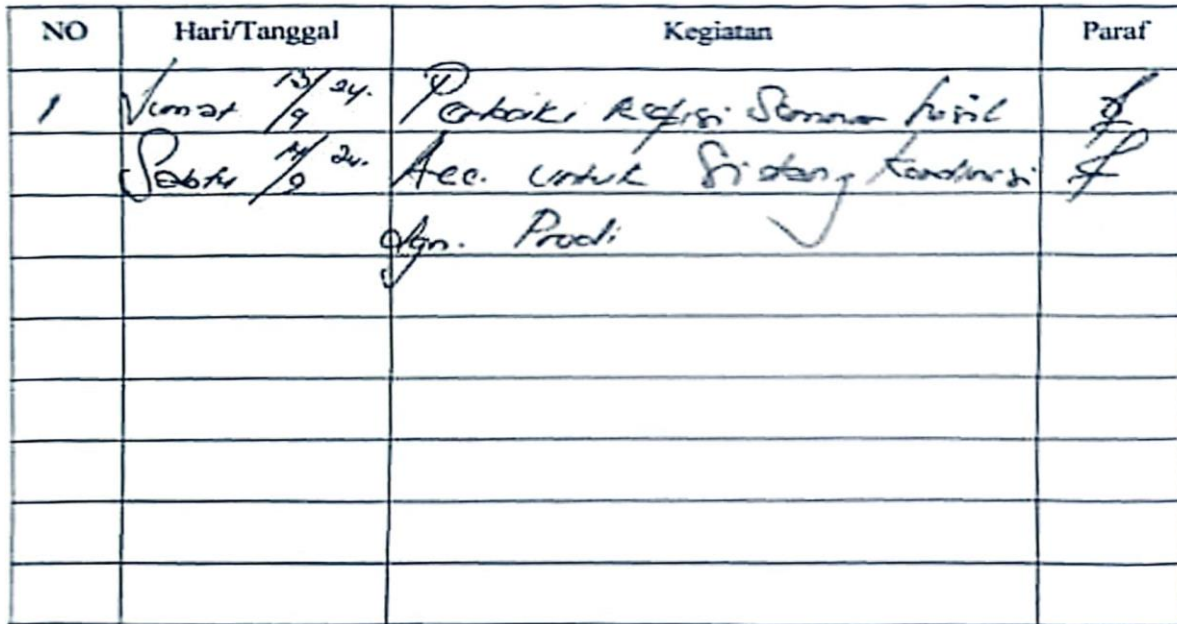 NO Hari/Tanggal Kegiatan Paraf
1 Jumat 13/9 24. Perbaiki Refisi Seminar hasil
Sabtu 14/9 24. Acc. untuk Sidang Koordinasi
dgn. Prodi